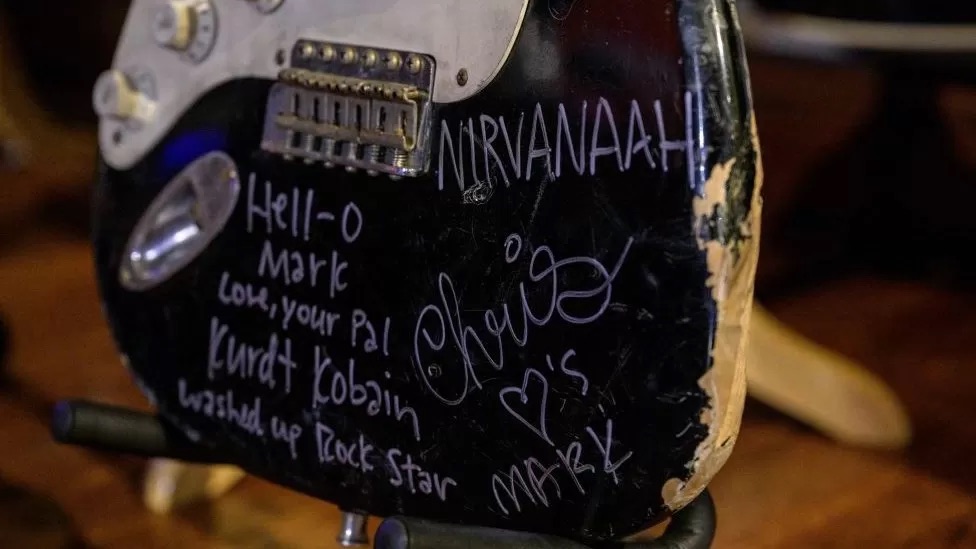 NIRVANAAH
Hell-o
Mark
Love, your pal
Kurdt Kobain
washed up Rock Star
Chris
♡'s
MARK